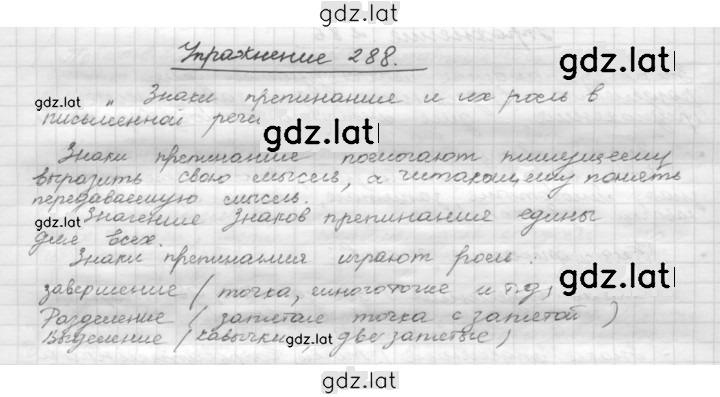 gdz.lat
Упражнение 288.
gdz.lat
gdz.lat
„ Знаки препинание и их роль в
письменной речи
gdz.lat
Знаки препинание помогают пишущему
выразить свою мысль, а читающему понять
передаваемую мысль.
gdz.lat
Значение знаков препинание едины
для всех.
Знаки препинания играют роль:
gdz.lat
завершение (точка, многоточие и т.д,
Разделение (запятые точка с запятой)
Выделение (кавычки, две запятые)
gdz.lat
gdz.lat